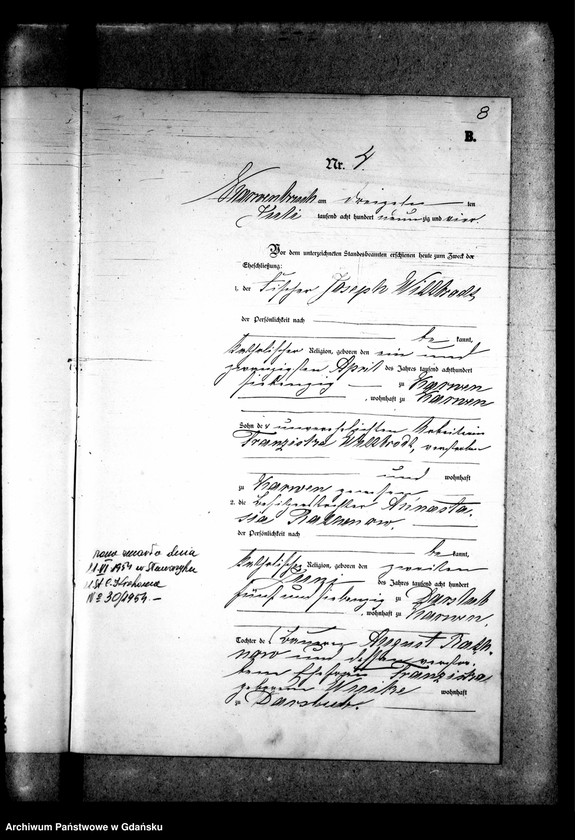 8
B.
Nr. 4
Karwenbruch am dreizehn ten
Juli tausend acht hundert neunzig und vier.
Vor dem unterzeichneten Standesbeamten erschienen heute zum Zweck der
Eheschließung:
1. der Fischer Joseph Willbrodt
der Persönlichkeit nach
be kannt,
katholischer Religion, geboren den ein und
zwanzigsten April des Jahres tausend achthundert
siebenzig zu Karwen
, wohnhaft zu Karwen
Sohn der unverehelichten Arbeiterin
Franziska Willbrodt, verstorben
und wohnhaft
zu Karwen gewesen
2. die Besitzertochter Annasta-
sia
der Persönlichkeit nach
be kannt,
katholischer Religion, geboren den zweiten
Juni des Jahres tausend acht hundert
fünf und siebenzig zu Darslub
, wohnhaft zu Karwen,
Tochter des Bauern August
und dessen verstor-
benen Ehefrau Franziska
geborenen wohnhaft
zu Darslub.
zmarła dnia
1954 w
U.S.C.
Nr 30/1954.—
Archiwum Państwowe w Gdańsku